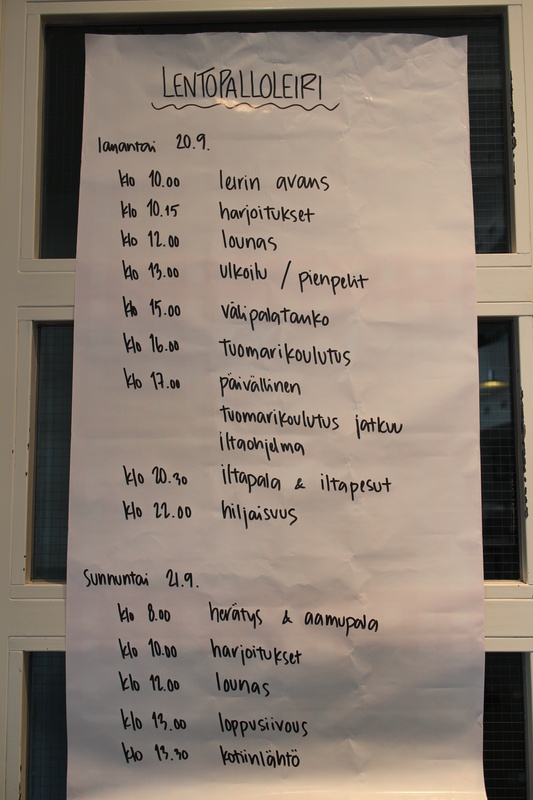 LENTOPALLOLEIRI
lauantai 20.9.
klo 10.00 leirin avaus
klo 10.15 harjoitukset
klo 12.00 lounas
klo 13.00 ulkoilu / pienpelit
klo 15.00 välipalatauko
klo 16.00 tuomarikoulutus
klo 17.00 päivällinen
tuomarikoulutus jatkuu
iltaohjelma
klo 20.30 iltapala & iltapesut
klo 22.00 hiljaisuus
Sunnuntai 21.9.
klo 8.00 herätys & aamupala
klo 10.00 harjoitukset
klo 12.00 lounas
klo 13.00 loppusiivous
klo 13.30 kotiinlähtö